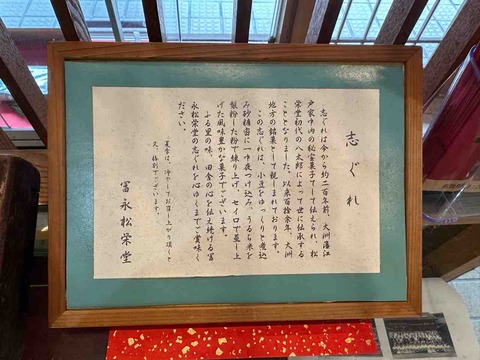 志ぐれ
志ぐれは今から約二百年前、大洲藩江
戸家中内の秘宝菓子として伝えられ、松
栄堂初代の八太郎によって世に伝承する
こととなりました。以来百拾余年、大洲
地方の銘菓として親しまれております。
この志ぐれは、小豆をゆっくりと煮込
み砂糖密に一昨夜つけ込み、うるち米を
製粉した粉で練り上げ、セイロで蒸し上
げた風味豊かな菓子でございます。
ふる里の味、田舎の心を伝え続ける冨
永松栄堂の志ぐれを心ゆくまでご賞味く
ださい。
夏季は、冷やしてお召し上がり頂くと
又、格別でございます。
冨永松栄堂